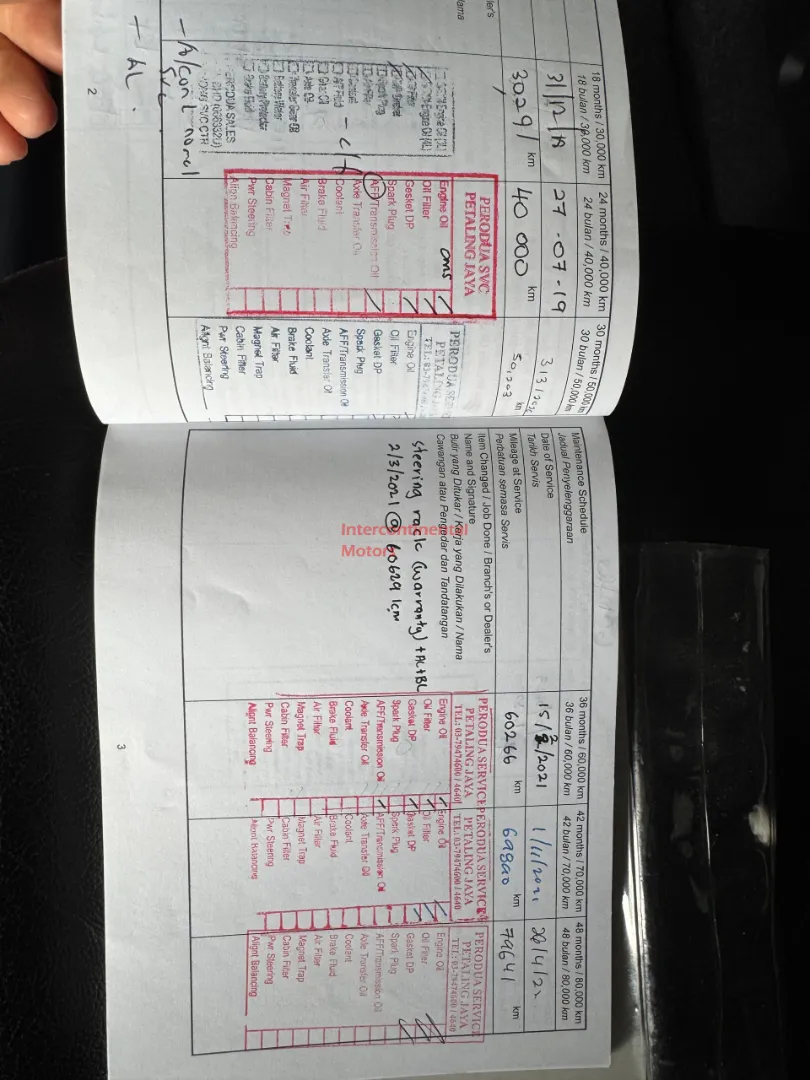 18 months / 30,000 km
18 bulan / 30,000 km
31/12/18
30,291 km
5W-30 Engine Oil (3L)
PERODUA SALES
- c/f
- A/cont normal
svc
+ AL.
2
24 months / 40,000 km
24 bulan / 40,000 km
27-07-19
40 000 km
PERODUA SVC
PETALING JAYA
Engine Oil
Oil Filter
Gasket DP
Spark Plug
AFF/Transmission Oil
Axle Transfer Oil
Coolant
Brake Fluid
Air Filter
Magnet Trap
Cabin Filter
Pwr Steering
Align Balancing
30 months / 50,000 km
30 bulan / 50,000 km
50,203 km
PERODUA
PETALING
Engine Oil
Oil Filter
Gasket DP
Spark Plug
AFF/Transmission Oil
Axle Transfer Oil
Coolant
Brake Fluid
Air Filter
Magnet Trap
Cabin Filter
Pwr Steering
Alignt Balancing
Maintenance Schedule
Jadual Penyelenggaraan
Date of Service
Tarikh Servis
Mileage at Service
Perbatuan semasa Servis
Item Changed / Job Done / Branch's or Dealer's
Name and Signature
Butir yang Ditukar / Kerja yang Dilakukan / Nama
Cawangan atau Pengedar dan Tandatangan
Steering rack (warranty) + AL+BL
2/3/2021 @ 60629 km
Intercontinental
Motor
36 months / 60,000 km
36 bulan / 60,000 km
15/2/2021
60266 km
PERODUA SERVICE
PETALING JAYA
TEL: 03-79474600 / 4640
Engine Oil
Oil Filter
Gasket DP
Spark Plug
AFF/Transmission Oil
Axle Transfer Oil
Coolant
Brake Fluid
Air Filter
Magnet Trap
Cabin Filter
Pwr Steering
Alignt Balancing
42 months / 70,000 km
42 bulan / 70,000 km
1/11/2021
69820 km
PERODUA SERVICE
PETALING JAYA
TEL: 03-79474600 / 4640
Engine Oil
Oil Filter
Gasket DP
Spark Plug
AFF/Transmission Oil
Axle Transfer Oil
Coolant
Brake Fluid
Air Filter
Magnet Trap
Cabin Filter
Pwr Steering
Alignt Balancing
48 months / 80,000 km
48 bulan / 80,000 km
22/4/22
79641 km
PERODUA SERVICE
PETALING JAYA
TEL: 03-79474600 / 4640
Engine Oil
Oil Filter
Gasket DP
Spark Plug
AFF/Transmission Oil
Axle Transfer Oil
Coolant
Brake Fluid
Air Filter
Magnet Trap
Cabin Filter
Pwr Steering
Alignt Balancing
3